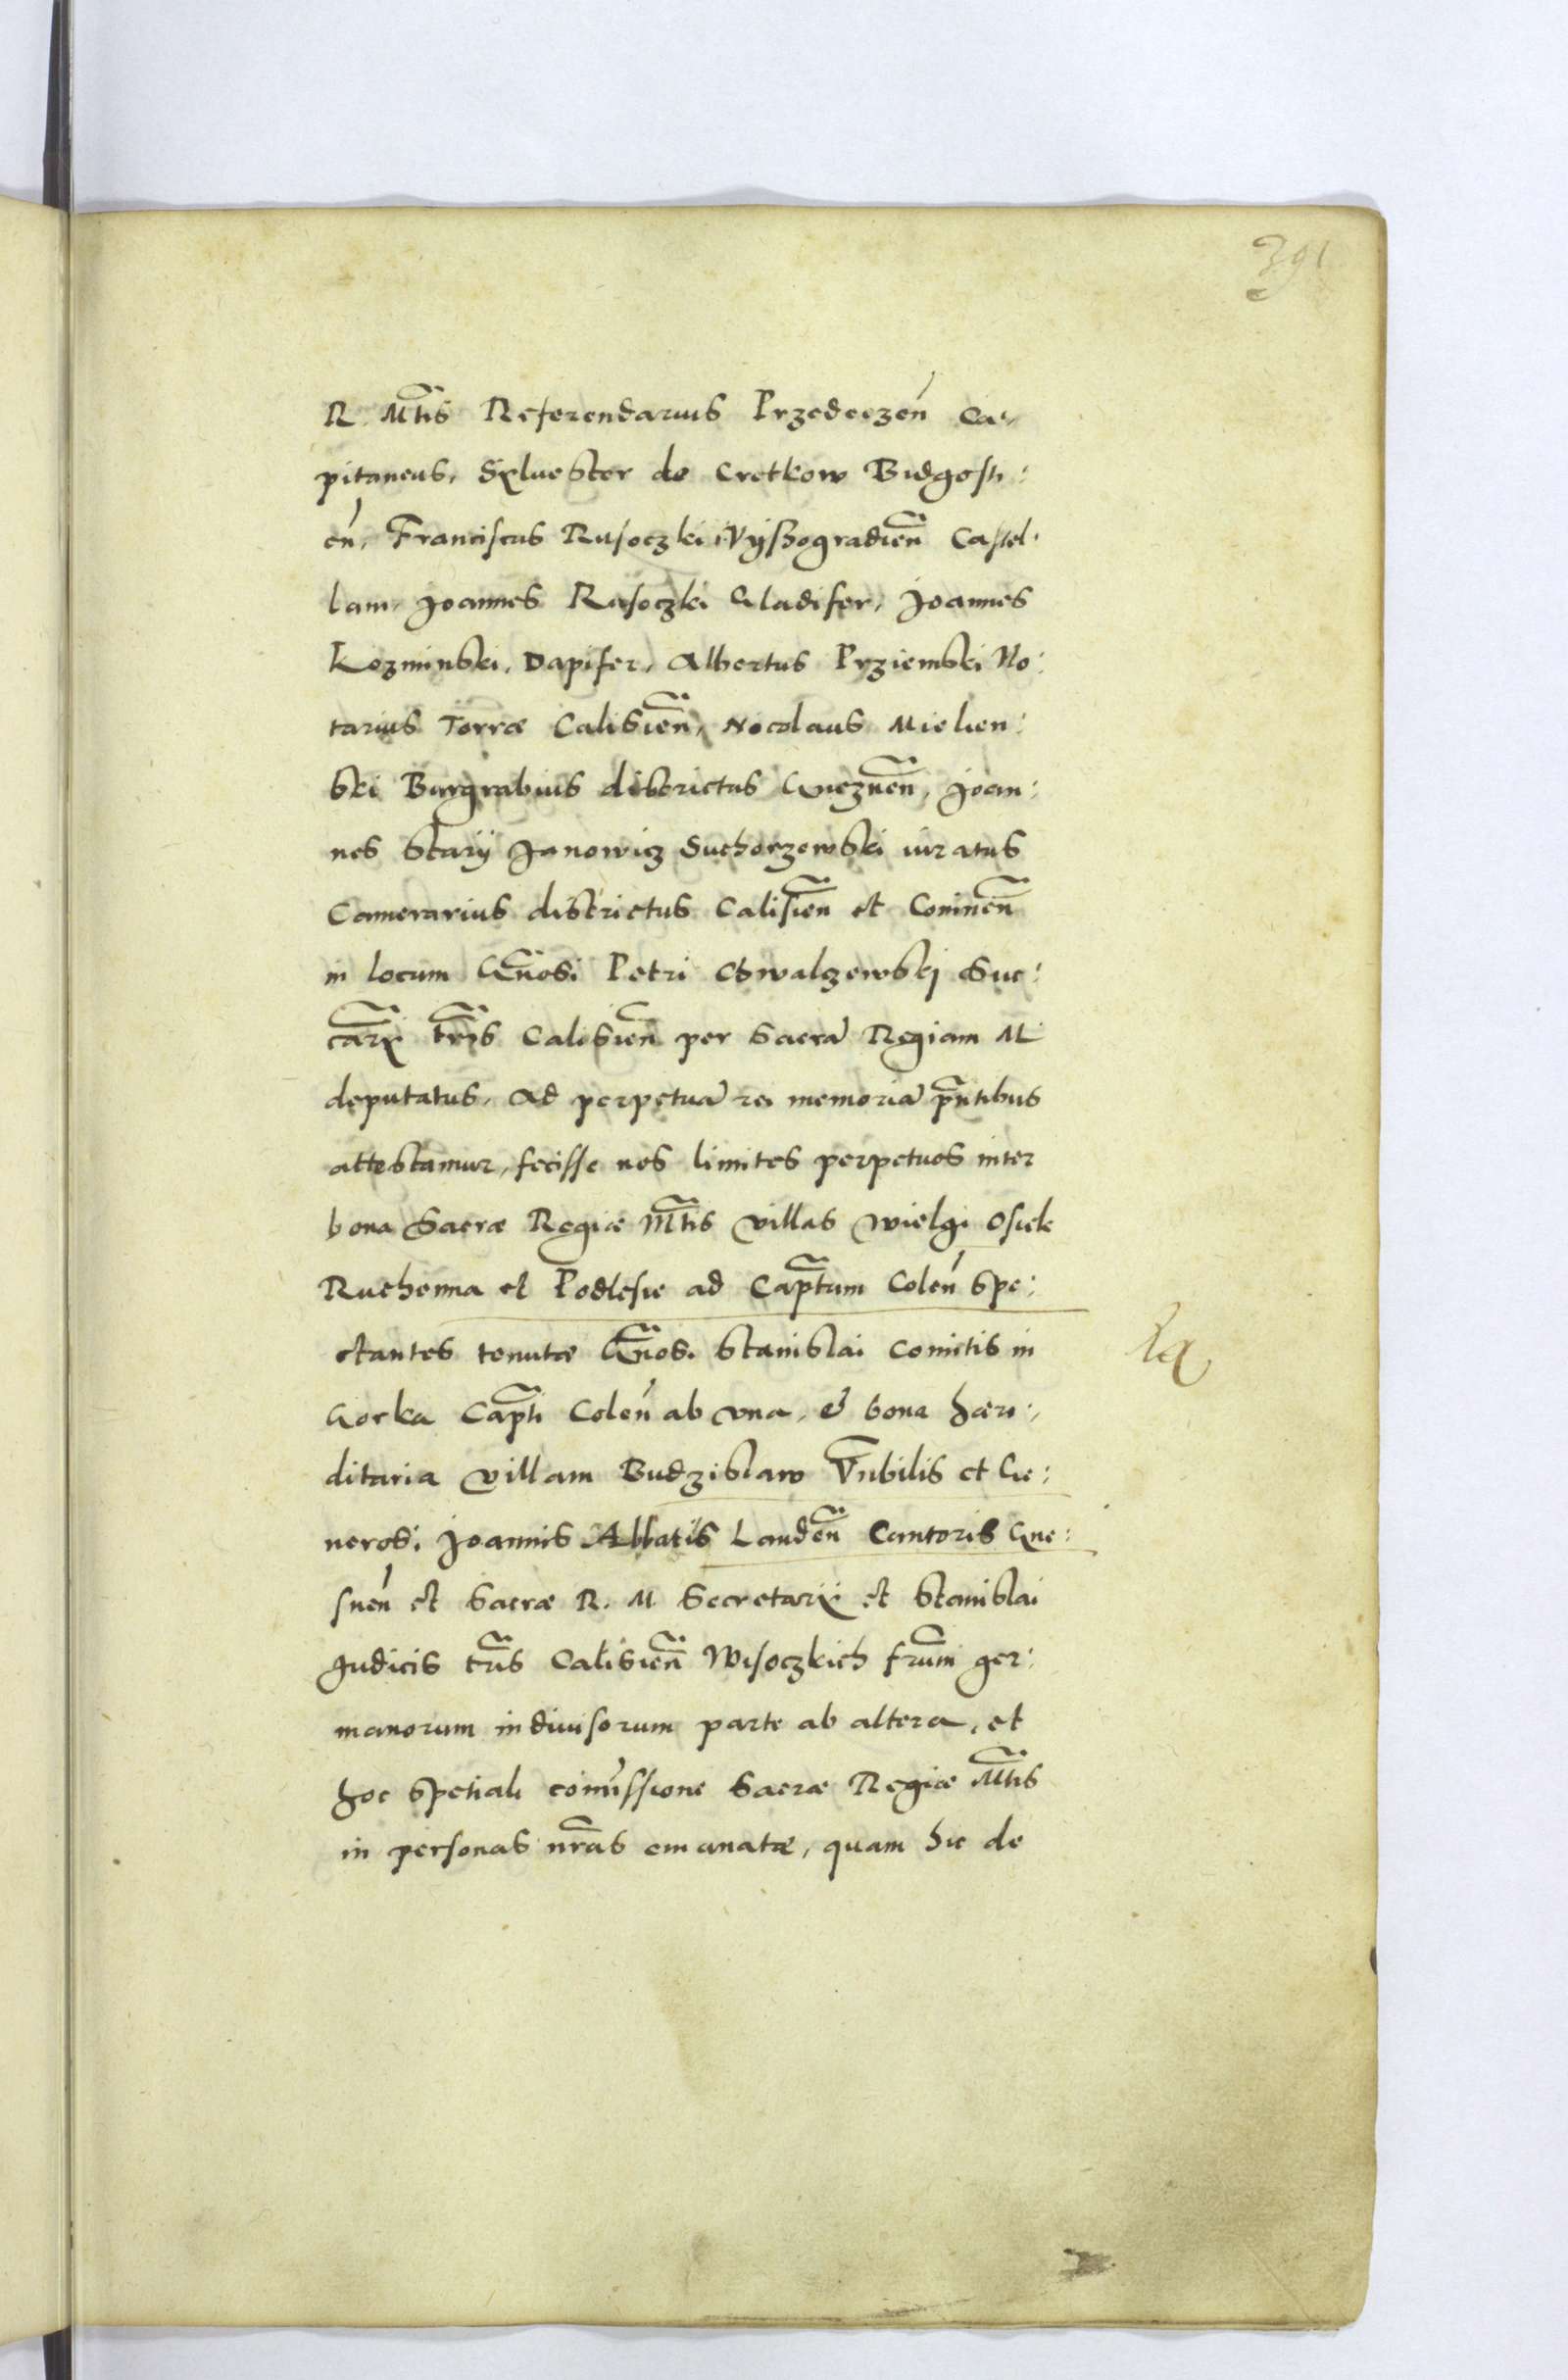 391
R. Mtis Referendarius Przedeczen Ca-
pitaneus, Sylvester de Cretkow Bidgosti:
en, Franciscus Rusoczki Wyssogradien Castel:
lani, Joannes Rusoczki Gladifer, Joannes
Kozminski, Dapifer, Albertus Prziemski No:
tarius Terræ Calisien, Nocolaus Mielien:
ski Burgrabius districtus Gneznen, Joan:
nes Stary Janowicz Suchorzewski iuratus
Camerarius districtus Calisien et Coninen
in locum Gnosi Petri Chwalczewskj Suc:
carij tris Calisien per Sacra Regiam M
deputatus, ad perpetua rei memoria pntibus
attestamur, fecisse nos limites perpetuos inter
bona Sacræ Regiæ Mtis villas Wielgi Osiek
Ruchenna et Podlesie ad Captum Colen spe:
ctantes tenutæ Gnos. Stanislai Comitis in
Gorka Capti Colen ab vna, & bona hæri:
ditaria villam Budzislaw Vnbilis et Ge:
nerosi Joannis Abbatis Landen Cantoris Gne:
snen et Sacræ R. M Secretarij et Stanislai
Judicis tris Calisien Wisoczkich frum ger:
manorum indiuisorum parte ab altera, et
hoc spetiali comissione Sacræ Regiæ Mtis
in personas nras emanatæ, quam hic de